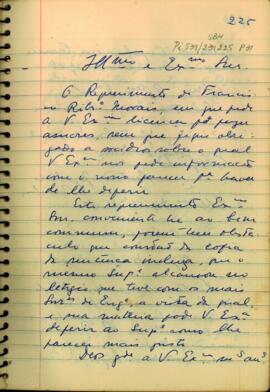 225
GBH
Illmo e Exmo Snr.
O Requerimento de Francis
co Ribro Morais, em que pede
a V Exma licença pa
sem que
gado a sobre o qual
V Exma nos pede informação
com o nosso parecer pa haver
de lhe deferir
Este requerimento Exmo
Snr. conveniente he ao bem
commum, porem tem obsta-
culo que consta da copia
da inclusa, que o
mesmo Supe alcançou no
letigio que teve com os mais
de Engo, a vista da qual,
e sua materia pode V Exma
deferir ao Supe como lhe
parecer mais justo
Deos gde a V. Exma ms ans